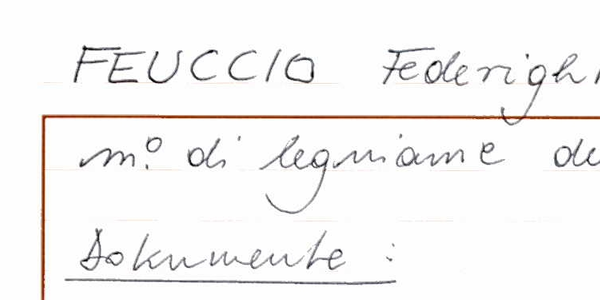 FEUCCIO Federigh
m.º di legniame de
Dokumente :